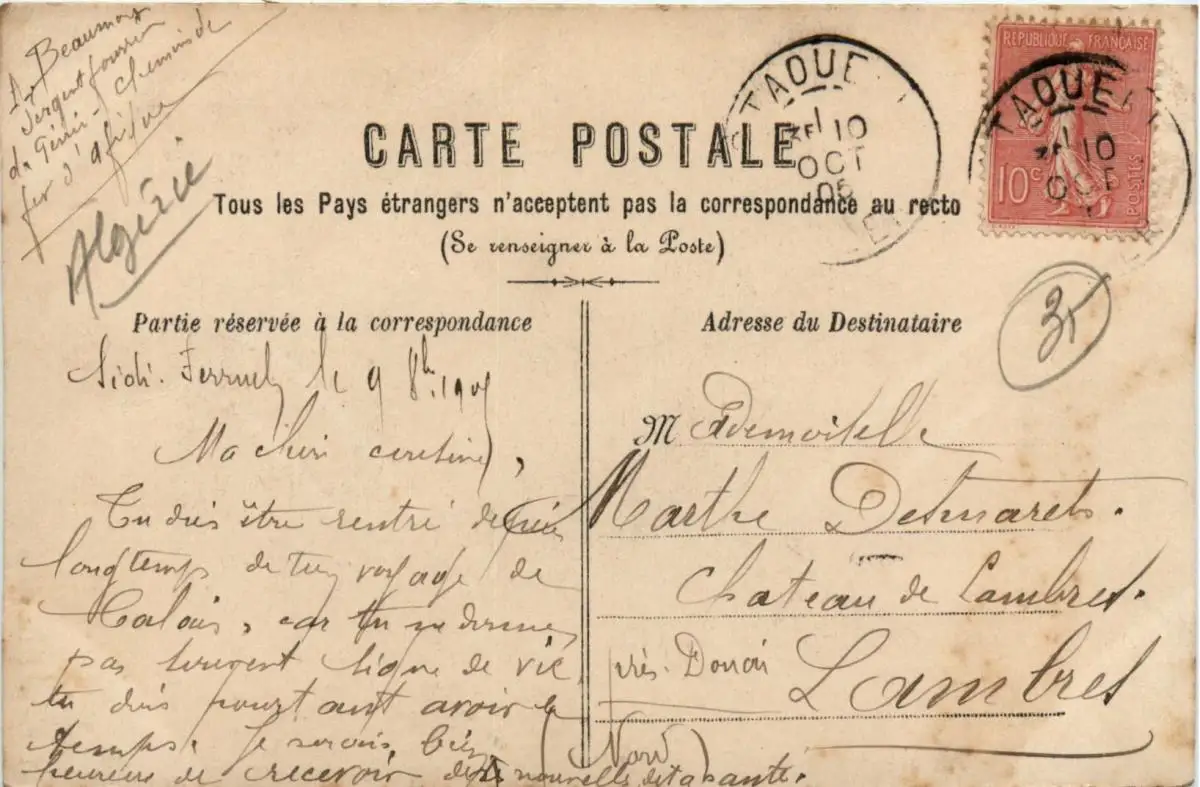 A. Beaumont
Sergent fourrier
du Génie - Chemins de
fer d'Afrique
Algérie
CARTE POSTALE
Tous les Pays étrangers n'acceptent pas la correspondance au recto
(Se renseigner à la Poste)
RÉPUBLIQUE FRANÇAISE
10c
POSTES
STAOUE
10
OCT
05
STAOUE
10
OCT
3
Partie réservée à la correspondance
Sidi-Ferruch le 9 8bre 1905
Ma chère cousine,
Tu dois être rentré depuis
longtemps de ton voyage de
Calais, car tu ne donnes
pas souvent signe de vie,
tu dois pourtant avoir le
temps. Je serais bien
heureux de recevoir des nouvelles de ta santé.
Adresse du Destinataire
Mademoiselle
Marthe Desmarets.
Chateau de Lambres.
près Douai Lambres
(Nord)